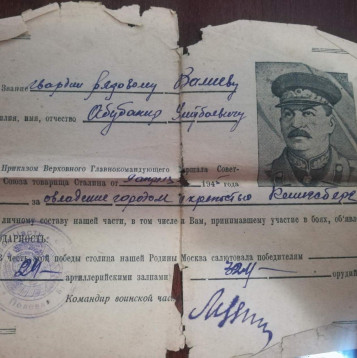 Звание гвардии рядовому Валиеву
милия, имя, отчество
Приказом Верховного Главнокомандующего Маршала Совет-
Союза товарища Сталина от 194 года
за овладение городом и крепостью Кенигсберг
личному составу нашей части, в том числе и Вам, принимавшему участие в боях, объявле
ДАРНОСТЬ:
В честь этой победы столица нашей Родины Москва салютовала победителям
24 артиллерийскими залпами 324 орудий
Командир воинской час